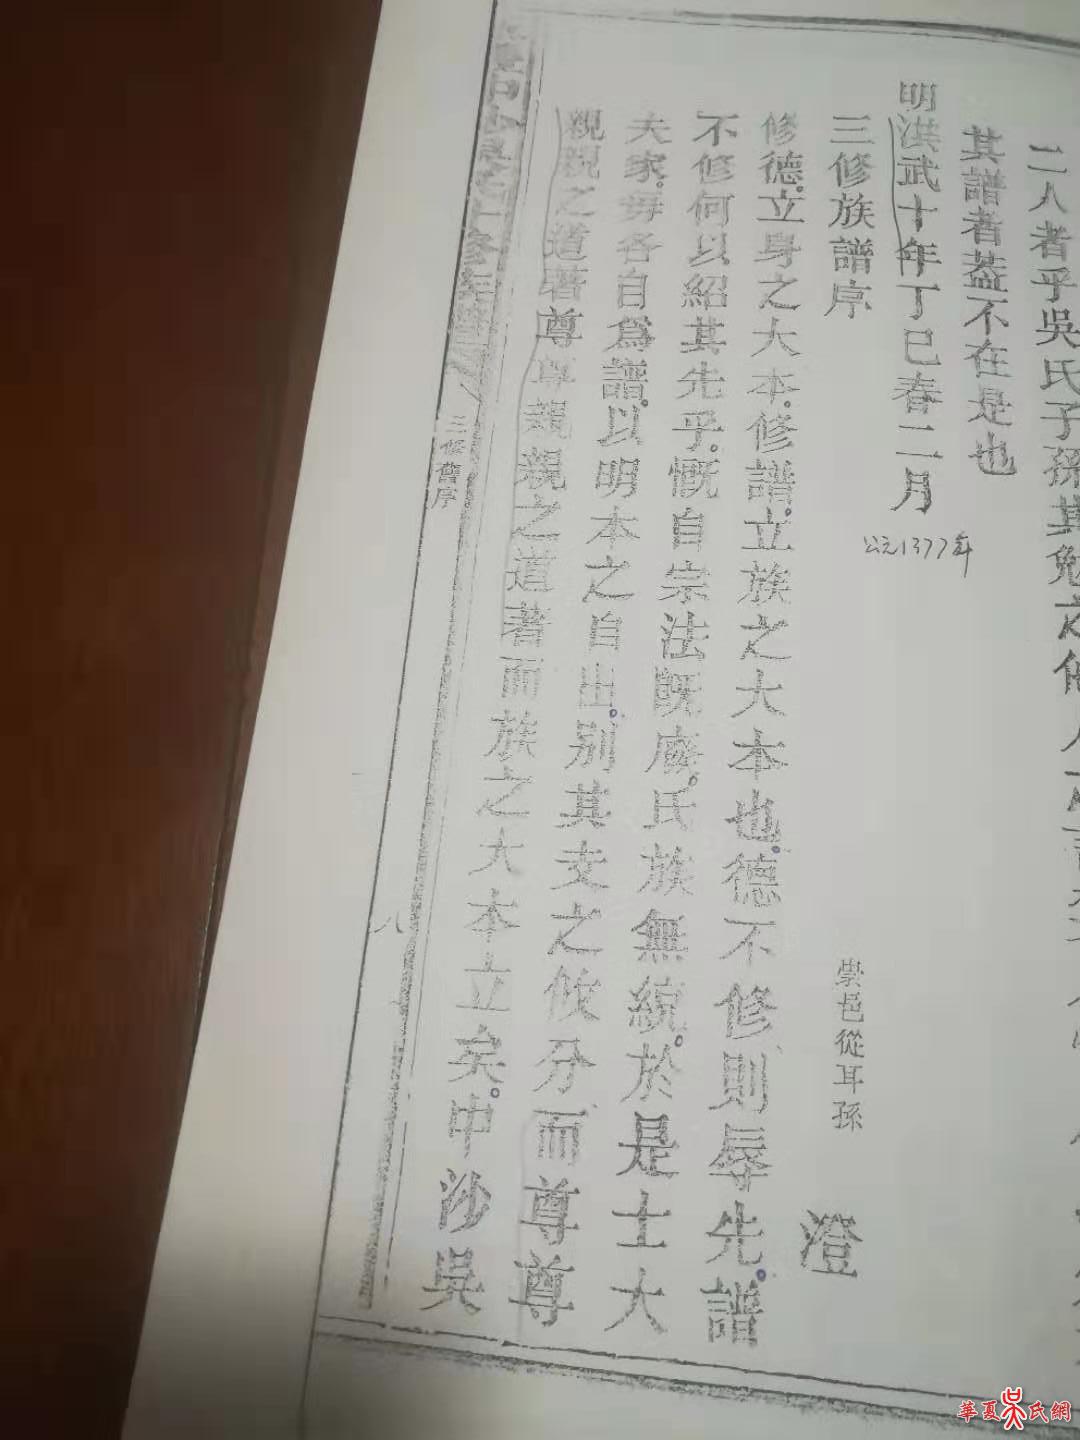 二人者乎吳氏子孫其勉之
其譜者葢不在是也
明洪武十年丁巳春二月
公元1377年
三修族譜序
崇邑從耳孫
澄
修德立身之大本修譜立族之大本也德不修則辱先譜
不修何以紹其先乎慨自宗法既廢氏族無統於是士大
夫家毋各自爲譜以明本之自出別其支之攸分而尊尊
親親之道著尊尊親親之道著而族之大本立矣中沙吳
三修舊序
八
華夏吳氏網